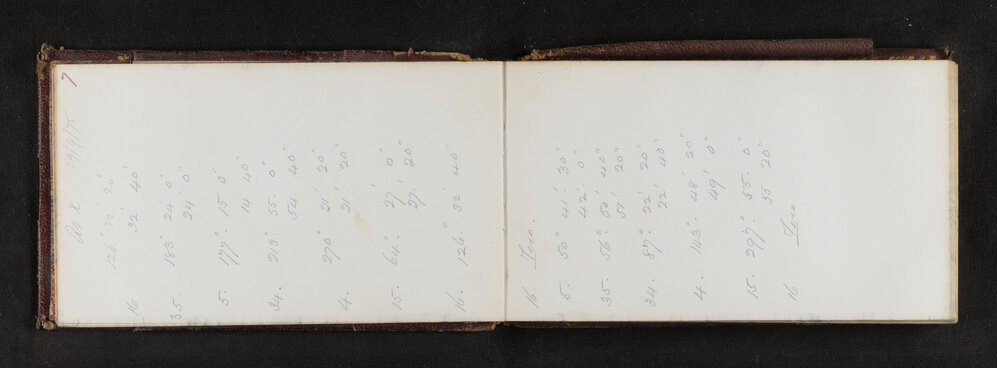 7
At X 29/9/75
126. 32' 20"
16 32' 40"
35. 183° 24' 0"
24' 0"
5. 177° 15' 0"
14' 40"
34. 213° 55' 0"
54' 40"
4. 270° 21' 20"
21' 20"
15. 64° 27' 0"
27' 20"
16. 126° 32' 40"
16. Zero.
5. 50° 41' 30"
42' 0"
35. 56° 50' 40"
51' 20"
34. 87° 22' 20"
22' 40"
4. 143° 48' 20"
49' 0"
15. 297° 55' 0"
55' 20"
16 Zero